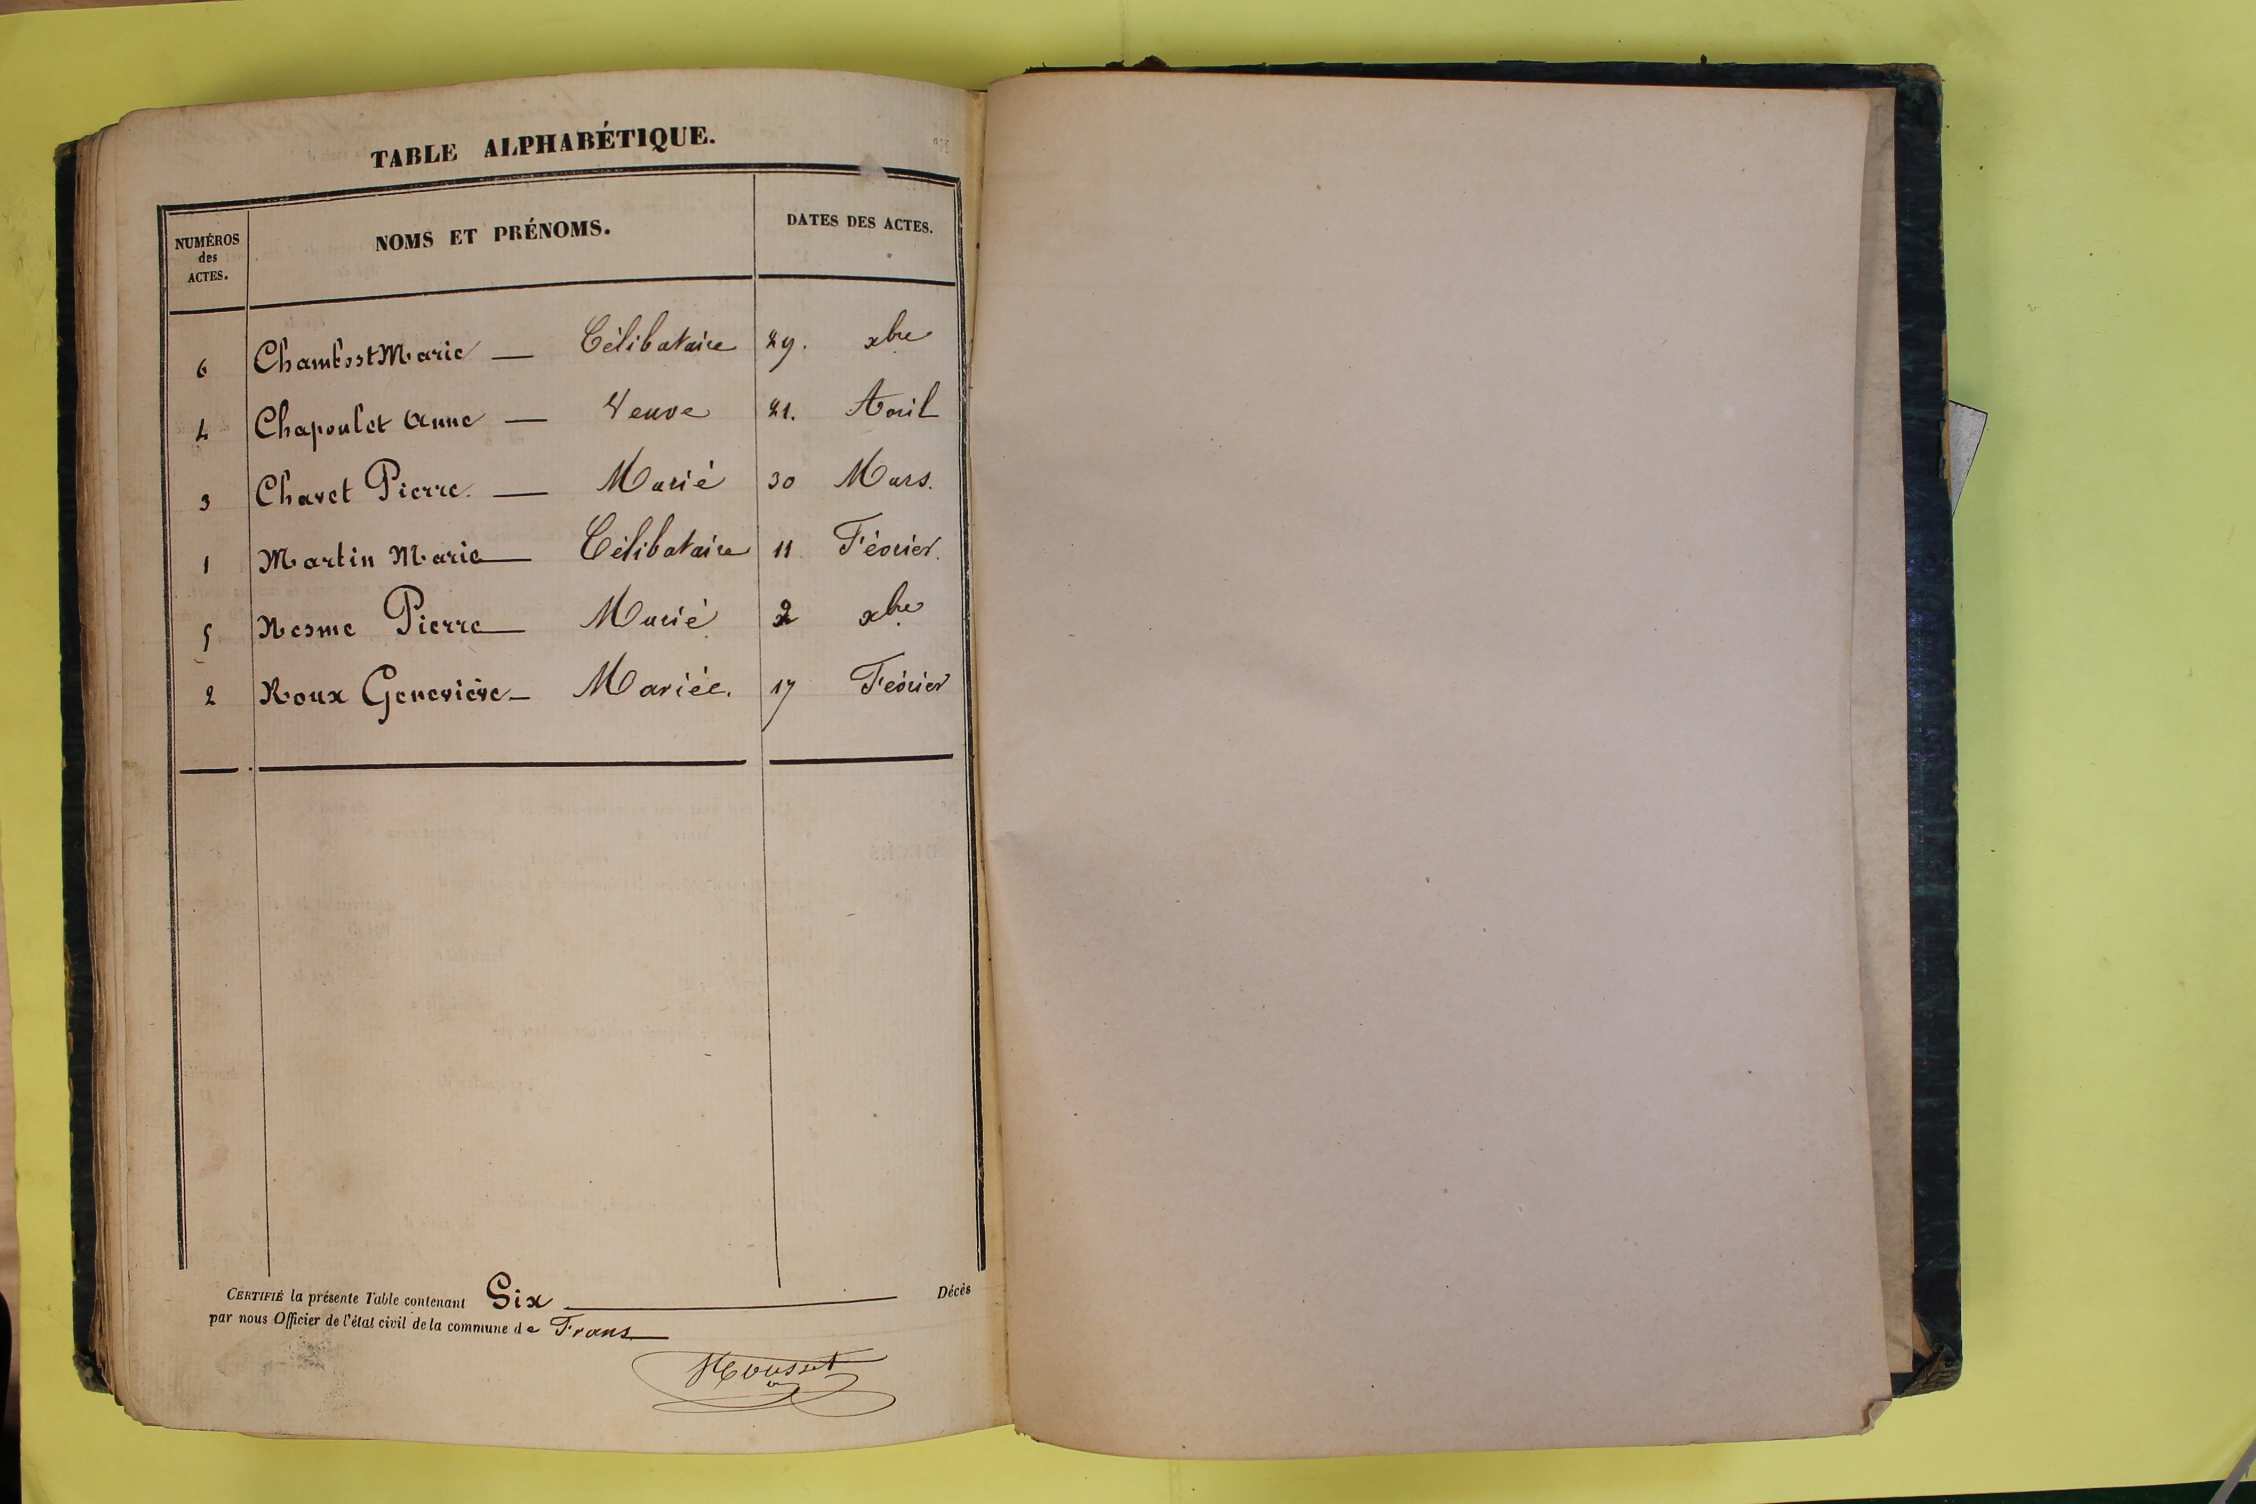 TABLE ALPHABÉTIQUE.
NUMÉROS
des
ACTES.
NOMS ET PRÉNOMS.
DATES DES ACTES.
6 Chambost Marie — Célibataire 29. xbre
4 Chapoulet Anne — Veuve 21. Avril
3 Chavet Pierre. — Marié 30 Mars.
1 Martin Marie — Célibataire 11 Février.
5 Nesme Pierre — Marié 2 xbre
2 Roux Geneviève — Mariée. 17 Février
CERTIFIÉ la présente Table contenant Six — Décès
par nous Officier de l'état civil de la commune de Frans —
Mousset